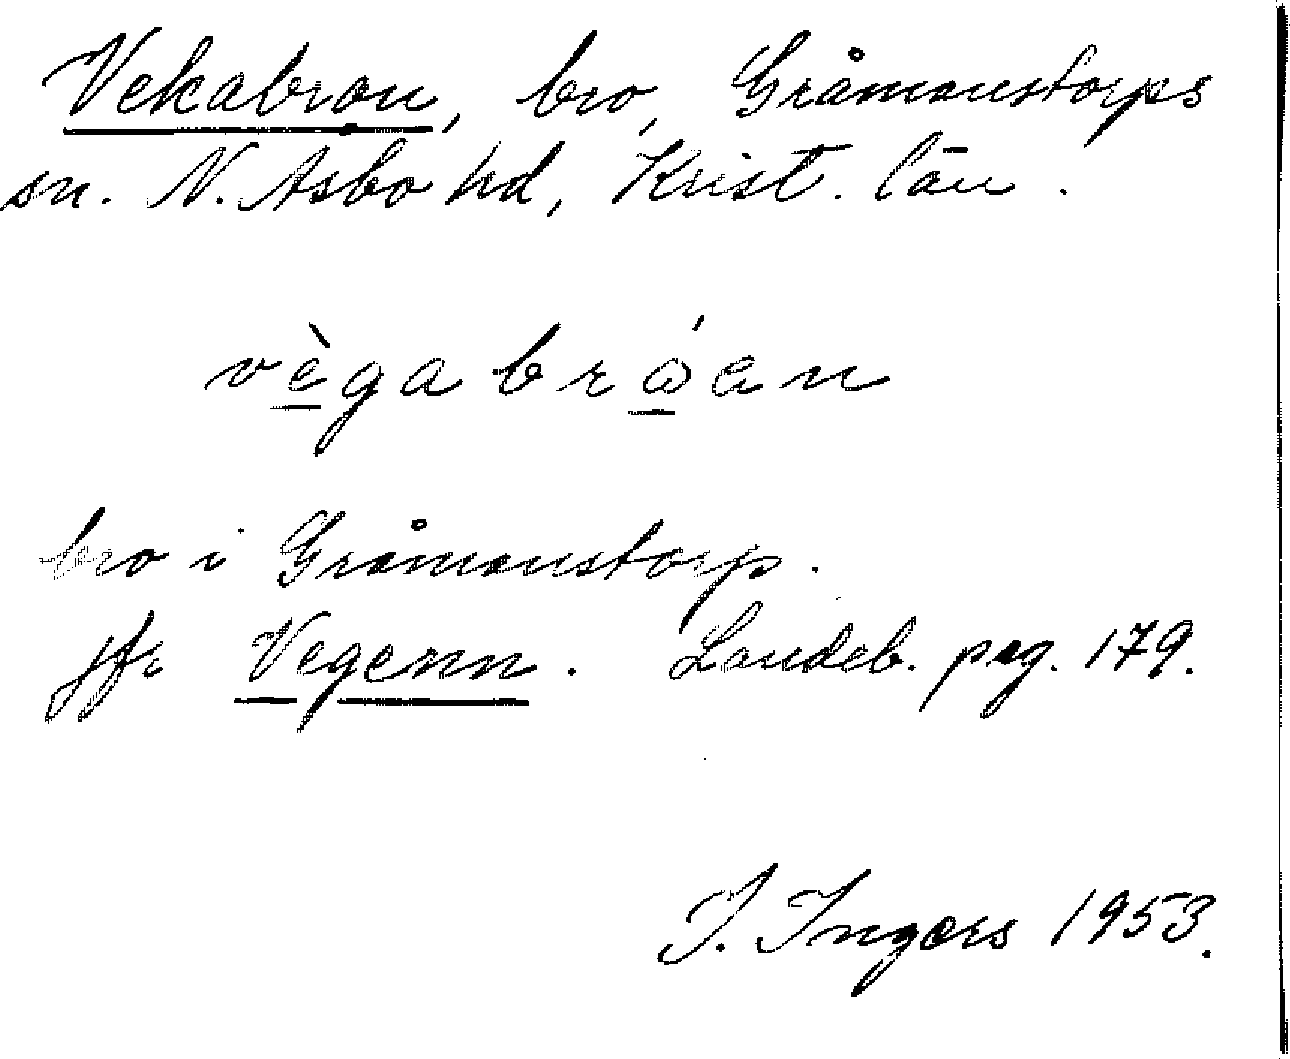 Vekabron, bro, Gråmanstorps
sn. N. Åsbo hd, Krist. län.
vègabrǿen
bro i Gråmanstorp.
jfr Vegenn. Landeb. pag. 179.
I. Ingers 1953.